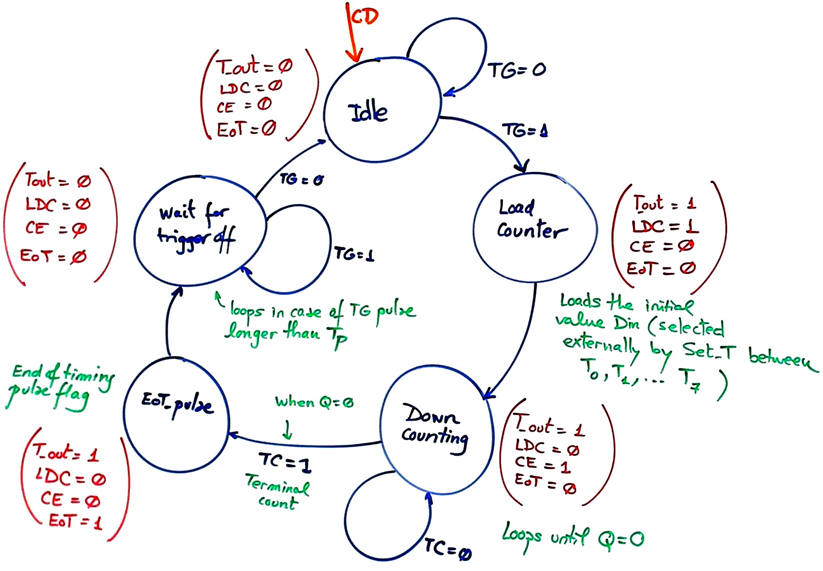 CD
T_out = 0
LDC = 0
CE = 0
EoT = 0
Idle
TG = 0
TG = 1
Tout = 0
LDC = 0
CE = 0
EoT = 0
Wait for
trigger off
TG = 0
TG = 1
Load
Counter
Tout = 1
LDC = 1
CE = 0
EoT = 0
loops in case of TG pulse
longer than Tp
Loads the initial
value Din (selected
externally by Set_T between
T0, T1, ... T7 )
End of timing
pulse flag
EoT_pulse
when Q = 0
TC = 1
Terminal
count
Down
Counting
T_out = 1
LDC = 0
CE = 1
EoT = 0
T_out = 1
LDC = 0
CE = 0
EoT = 1
Loops until Q = 0
TC = 0